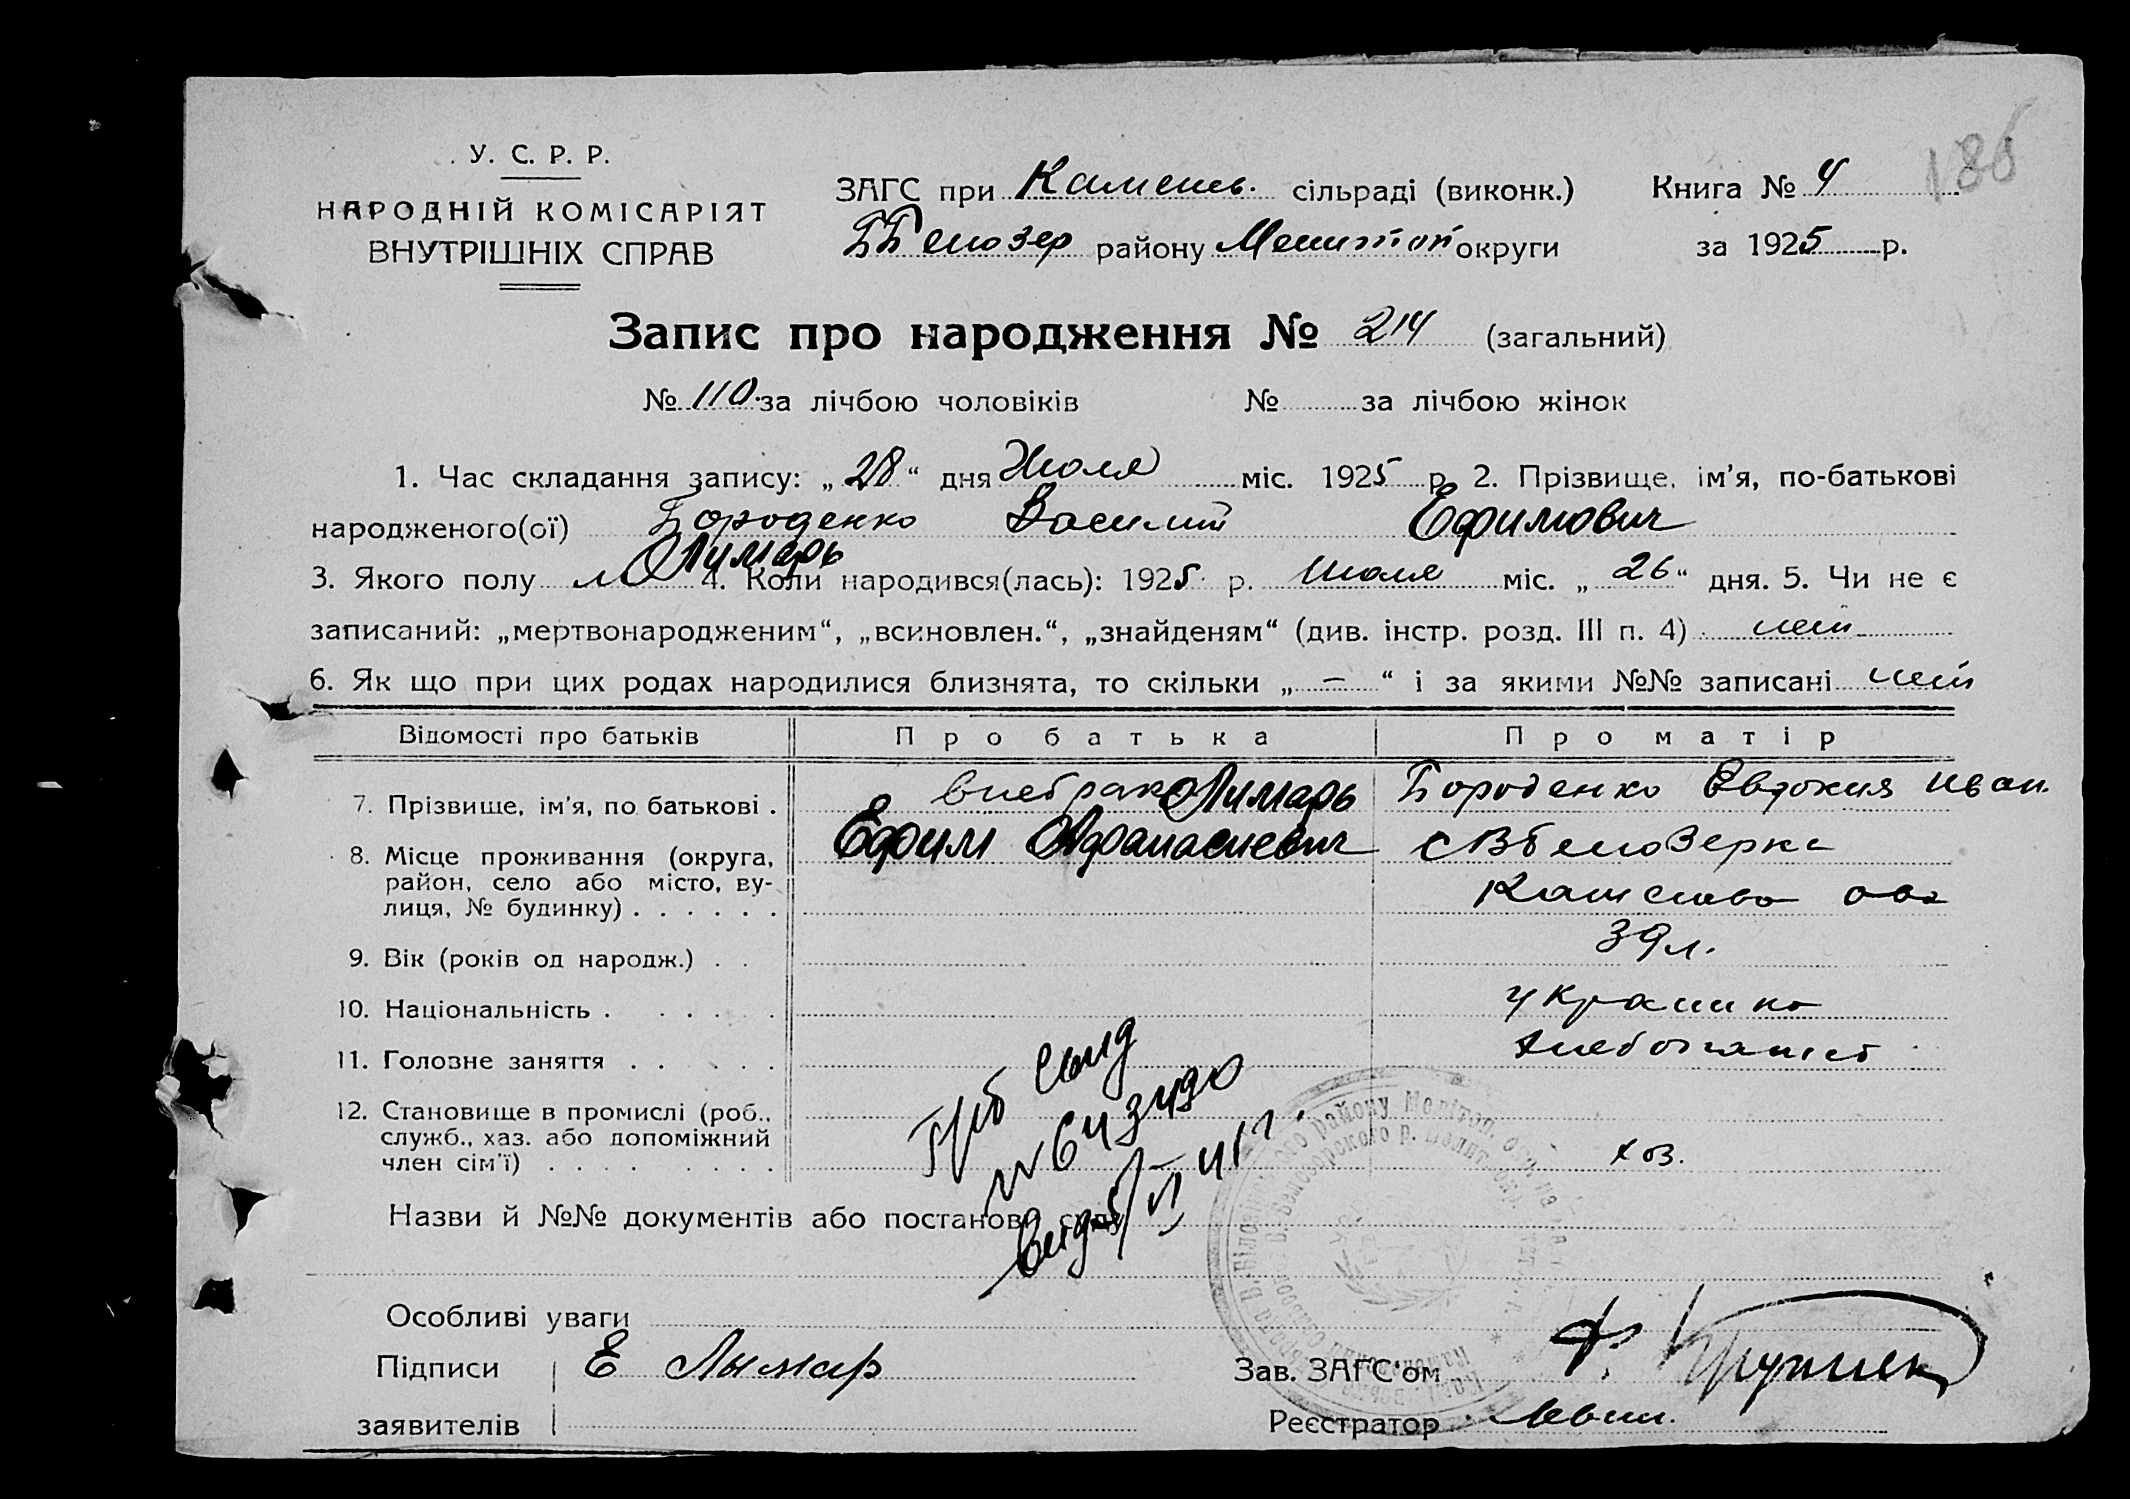 186
У. С. Р. Р.
НАРОДНІЙ КОМІСАРІЯТ
ВНУТРІШНІХ СПРАВ
ЗАГС при Каменев. сільраді (виконк.) Книга № 4
ББелозер району Мелитоп округи за 1925 р.
Запис про народження № 214 (загальний)
№ 110 за лічбою чоловіків № за лічбою жінок
1. Час складання запису: „28“ дня Июля міс. 1925 р. 2. Прізвище, ім'я, по-батькові
народженого(ої) Бороденко Василий Ефимович
Лимарь
3. Якого полу м 4. Коли народився(лась): 1925 р. Июля міс. „26“ дня. 5. Чи не є
записаний: „мертвонародженим“, „всиновлен.“, „знайденям“ (див. інстр. розд. III п. 4) нет
6. Як що при цих родах народилися близнята, то скільки „ — “ і за якими №№ записані нет
Відомості про батьків Про батька Про матір
7. Прізвище, ім'я, по батькові . внебрако Лимарь Бороденко Евдокия Иван.
Ефим Афанасиевич
8. Місце проживання (округа, район, село або місто, вулиця, № будинку) . . . . . . с ВБелоЗерка
9. Вік (років од народж.) . . 39 л.
10. Національність . . . . . . украинка
11. Головне заняття . . . . . хлебопашест
12. Становище в промислі (роб., служб., хаз. або допоміжний член сім'ї) . . . . . . . . хоз.
Назви й №№ документів або постанови суду
Особливі уваги
Підписи Е Лымар Зав. ЗАГС'ом
заявителів Реєстратор